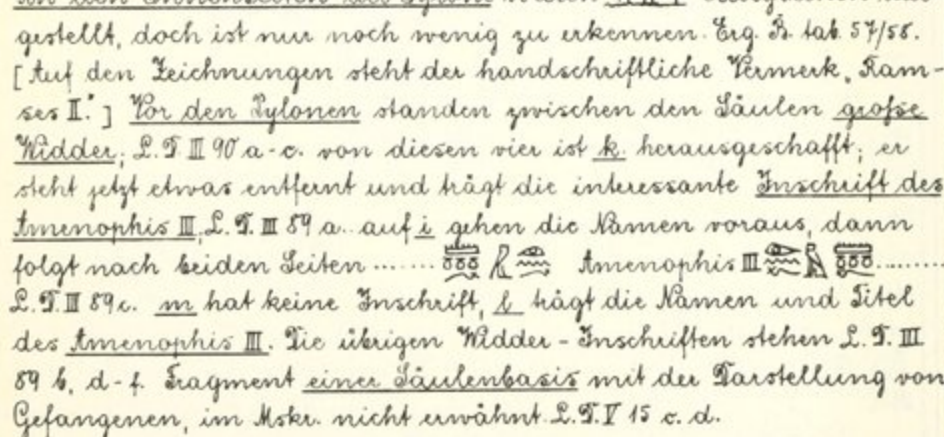 an den Innenseiten des Pylons
gestellt, doch ist nur noch wenig zu erkennen. Erg. B. tab. 57/58.
[Auf den Zeichnungen steht der handschriftliche Vermerk „Ram-
ses II.“] Vor den Pylonen standen zwischen den Säulen große
Widder; L.D. III 90 a-c. von diesen vier ist k. herausgeschafft; er
steht jetzt etwas entfernt und trägt die interessante Inschrift des
Amenophis III, L.D. III 89 a.. auf i gehen die Namen voraus, dann
folgt nach beiden Seiten ....... Amenophis III .........
L.D. III 89 c. m hat keine Inschrift, l trägt die Namen und Titel
des Amenophis III. Die übrigen Widder-Inschriften stehen L.D. III
89 b, d-f. Fragment einer Säulenbasis mit der Darstellung von
Gefangenen, im Mskr. nicht erwähnt. L.D. V 15 c. d.